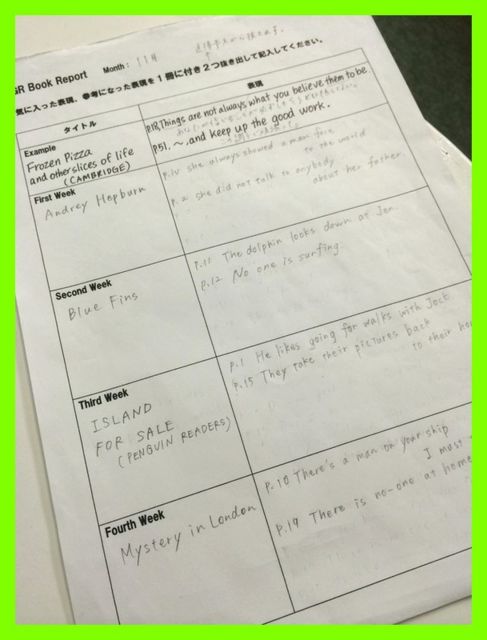 GR Book Report Month: 11月
気に入った表現、参考になった表現を1冊に付き2つ抜き出して記入してください。
タイトル
表現
Example
Frozen Pizza
and other slices of life
(CAMBRIDGE)
p.18, Things are not always what you believe them to be.
p51. ~ .and keep up the good work.
First Week
Audrey Hepburn
she always showed a man face
to the world
p.2 she did not talk to anybody
about her father
Second Week
Blue Fins
p.11 The dolphin looks down at Jen.
p.12 No one is surfing.
Third Week
ISLAND
FOR SALE
(PENGUIN READERS)
p.1 He likes going for walks with Jock
p.15 They take their pictures back
to their
Fourth Week
Mystery in London
p.10 There's a man on your ship
I must
p.19 There is no-one at home